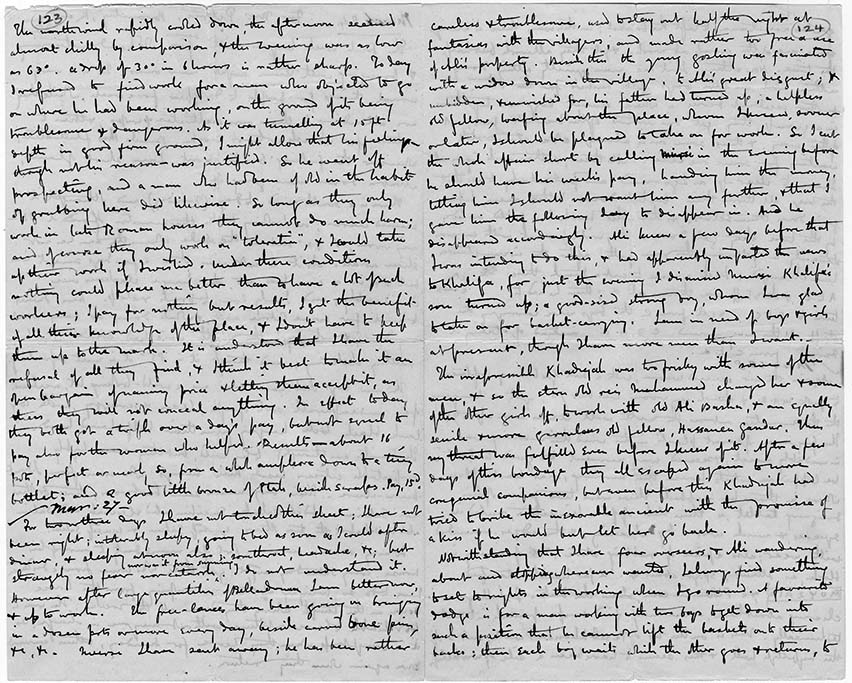 123
The northwind rapidly cooled down the afternoon seemed
almost chilly by comparison & the evening was as low
as 63°. a drop of 30° in 6 hours is rather sharp. Today
I refused to find work for a man who objected to go
on where he had been working, on the ground of its being
troublesome & dangerous. As it was tunnelling at 15 ft
depth in good firm ground, I might allow that his feelings
though not his reason was justified. So he went off
prospecting, and a man who had been of old in the habit
of grubbing here did likewise. So long as they only
work in late Roman houses they cannot do much harm;
and of course they only work on "toleration", & I could take
up their work if I wished. Under these conditions
nothing could please me better than to have a lot of such
workers; I pay for nothing but results, I get the benefit
of all their knowledge of the place, & I don't have to keep
them up to the mark. It is understood that I have the
refusal of all they find, & I think it best to make it an
open bargain of naming price & letting them accept it, as
thus they will not conceal anything. In effect today
they both got a trifle over a day's pay, but not equal to
pay also for the women who helped. Results — about 16
pots, perfect or near, so, from a whole amphora down to a tiny
bottlet; and a good little bronze of Ptah, beside scraps. Pay, 15d
Mar: 27—
For two or three days I have not touched this sheet; I have not
been right; intolerably sleepy, going to bed as soon as I could after
dinner, & sleeping at noon also; sore throat, headache, &c; but
strangely no fever nor I do not understand it.
However after large quantities of Belladonna I am better now,
& up to work. The free-lances have been going on bringing
in a dozen pots or more every day, beside carved bone pins,
&c, &c. Mursi I have sent away; he has been rather
124
careless & troublesome, used to stay out half the night at
fantasias with the villagers, and made rather too free a use
of Ali's property. Beside this the young gosling was fascinated
with a widow down in the village, to Ali's great disgust; &
unbidden, & unwished for, his father had turned up, a helpless
old fellow, loafing about the place, whom I knew, sooner
or later, I should be plagued to take on for work. So I cut
the whole affair short by calling Mursi in the evening before
he should have his week's pay, handing him the money,
telling him I should not want him any further, & that I
gave him the following day to disappear in. And he
disappeared accordingly. Ali knew a few days before that
I was intending to do this, & had apparently imparted the news
to Khalifa, for just the evening I dismissed Mursi Khalifa's
son turned up; a good-sized strong boy, whom I am glad
to take on for basket-carrying. I am in need of boys & girls
at present, though I have more men than I want.
The irrepressible Khadrejah was too frisky with some of the
men, & so the stern old reis Muhammed changed her & some
of the other girls off, to work with old Ali Basha, & an equally
senile & more garrulous old fellow, Hassanen Gandur. Thus
my threat was fulfilled even before I knew of it. After a few
days of this bondage they all escaped again to more
congenial companions, but even before this Khadrejah had
tried to bribe the inexorable ancients with the promise of
a kiss if he would but let her go back.
Notwithstanding that I have four overseers, & Ali wandering
about and stopping wherever wanted, I always find something
to set to rights in the working when I go round. A favourite
dodge is for a man working with two boys to get down into
such a position that he cannot lift the baskets onto their
backs; then each boy waits while the other goes & returns, to